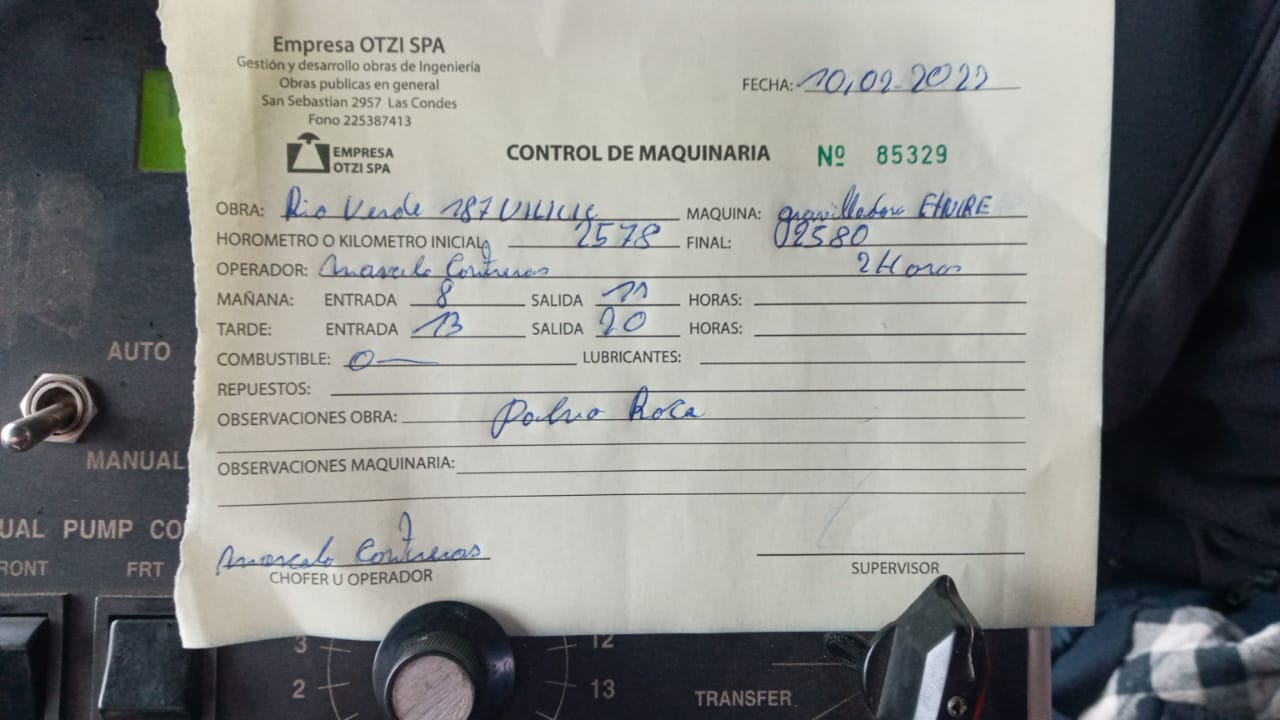 Empresa OTZI SPA
Gestión y desarrollo obras de Ingeniería
Obras publicas en general
San Sebastian 2957 Las Condes
Fono 225387413
EMPRESA
OTZI SPA
FECHA: 10,02-2022
CONTROL DE MAQUINARIA Nº 85329
OBRA: Rio Verde 187 MAQUINA: gravilladora ETNIRE
HOROMETRO O KILOMETRO INICIAL 2578 FINAL: 02580
OPERADOR: Marcelo Contreras 2 Horas
MAÑANA: ENTRADA 8 SALIDA 11 HORAS:
TARDE: ENTRADA 13 SALIDA 20 HORAS:
COMBUSTIBLE: 0 LUBRICANTES:
REPUESTOS:
OBSERVACIONES OBRA: Polvo Roca
OBSERVACIONES MAQUINARIA:
Marcelo Contreras
CHOFER U OPERADOR
SUPERVISOR
AUTO
MANUAL
UAL PUMP CO
RONT FRT
3 12
2 13
TRANSFER